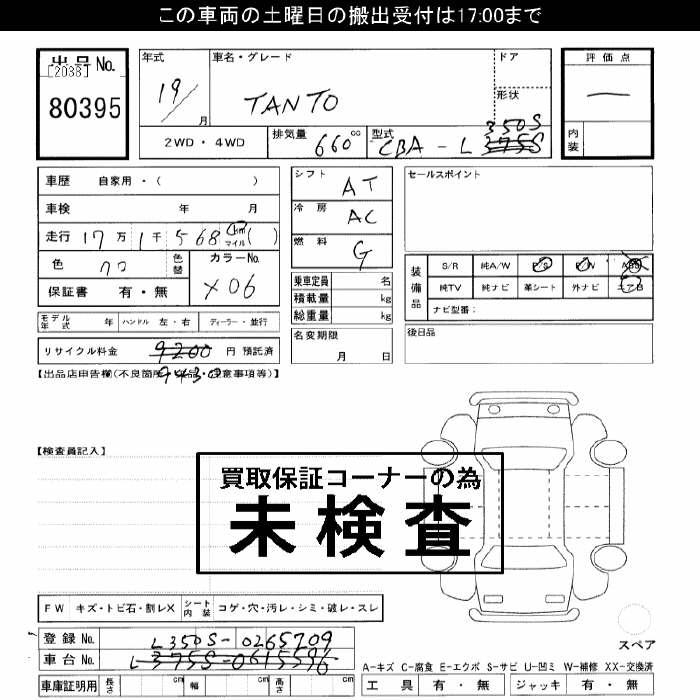 この車両の土曜日の搬出受付は17:00まで
出品No.
[2038]
80395
年式
19/
月
車名・グレード
TANTO
ドア
形状
評価点
内装
2WD ・ 4WD
排気量
660 cc
型式
350S
CBA - L 375S
車歴 自家用・( )
車検 年 月
走行 17万 1千 568 km マイル ( )
色 クロ
色替
カラーNo.
X06
保証書 有・無
シフト AT
冷房 AC
燃料 G
乗車定員 名
積載量 kg
総重量 kg
名変期限
月 日
セールスポイント
装備品
S/R 純A/W P/S P/W ABS
純TV 純ナビ 革シート 外ナビ エアB
ナビ型番:
後日品
モデル年式 年 ハンドル 左・右 ディーラー・並行
リサイクル料金 9200 円 預託済
9430
【出品店申告欄(不良箇所・欠品・注意事項等)】
【検査員記入】
買取保証コーナーの為
未検査
FW キズ・トビ石・割レX
シート内装 コゲ・穴・汚レ・シミ・破レ・スレ
登録No. L350S-0265709
車台No. L375S-0615596
車庫証明用 長さ cm 幅 cm 高さ cm
スペア
A-キズ C-腐食 E-エクボ S-サビ U-凹ミ W-補修 XX-交換済
工具 有・無 ジャッキ 有・無